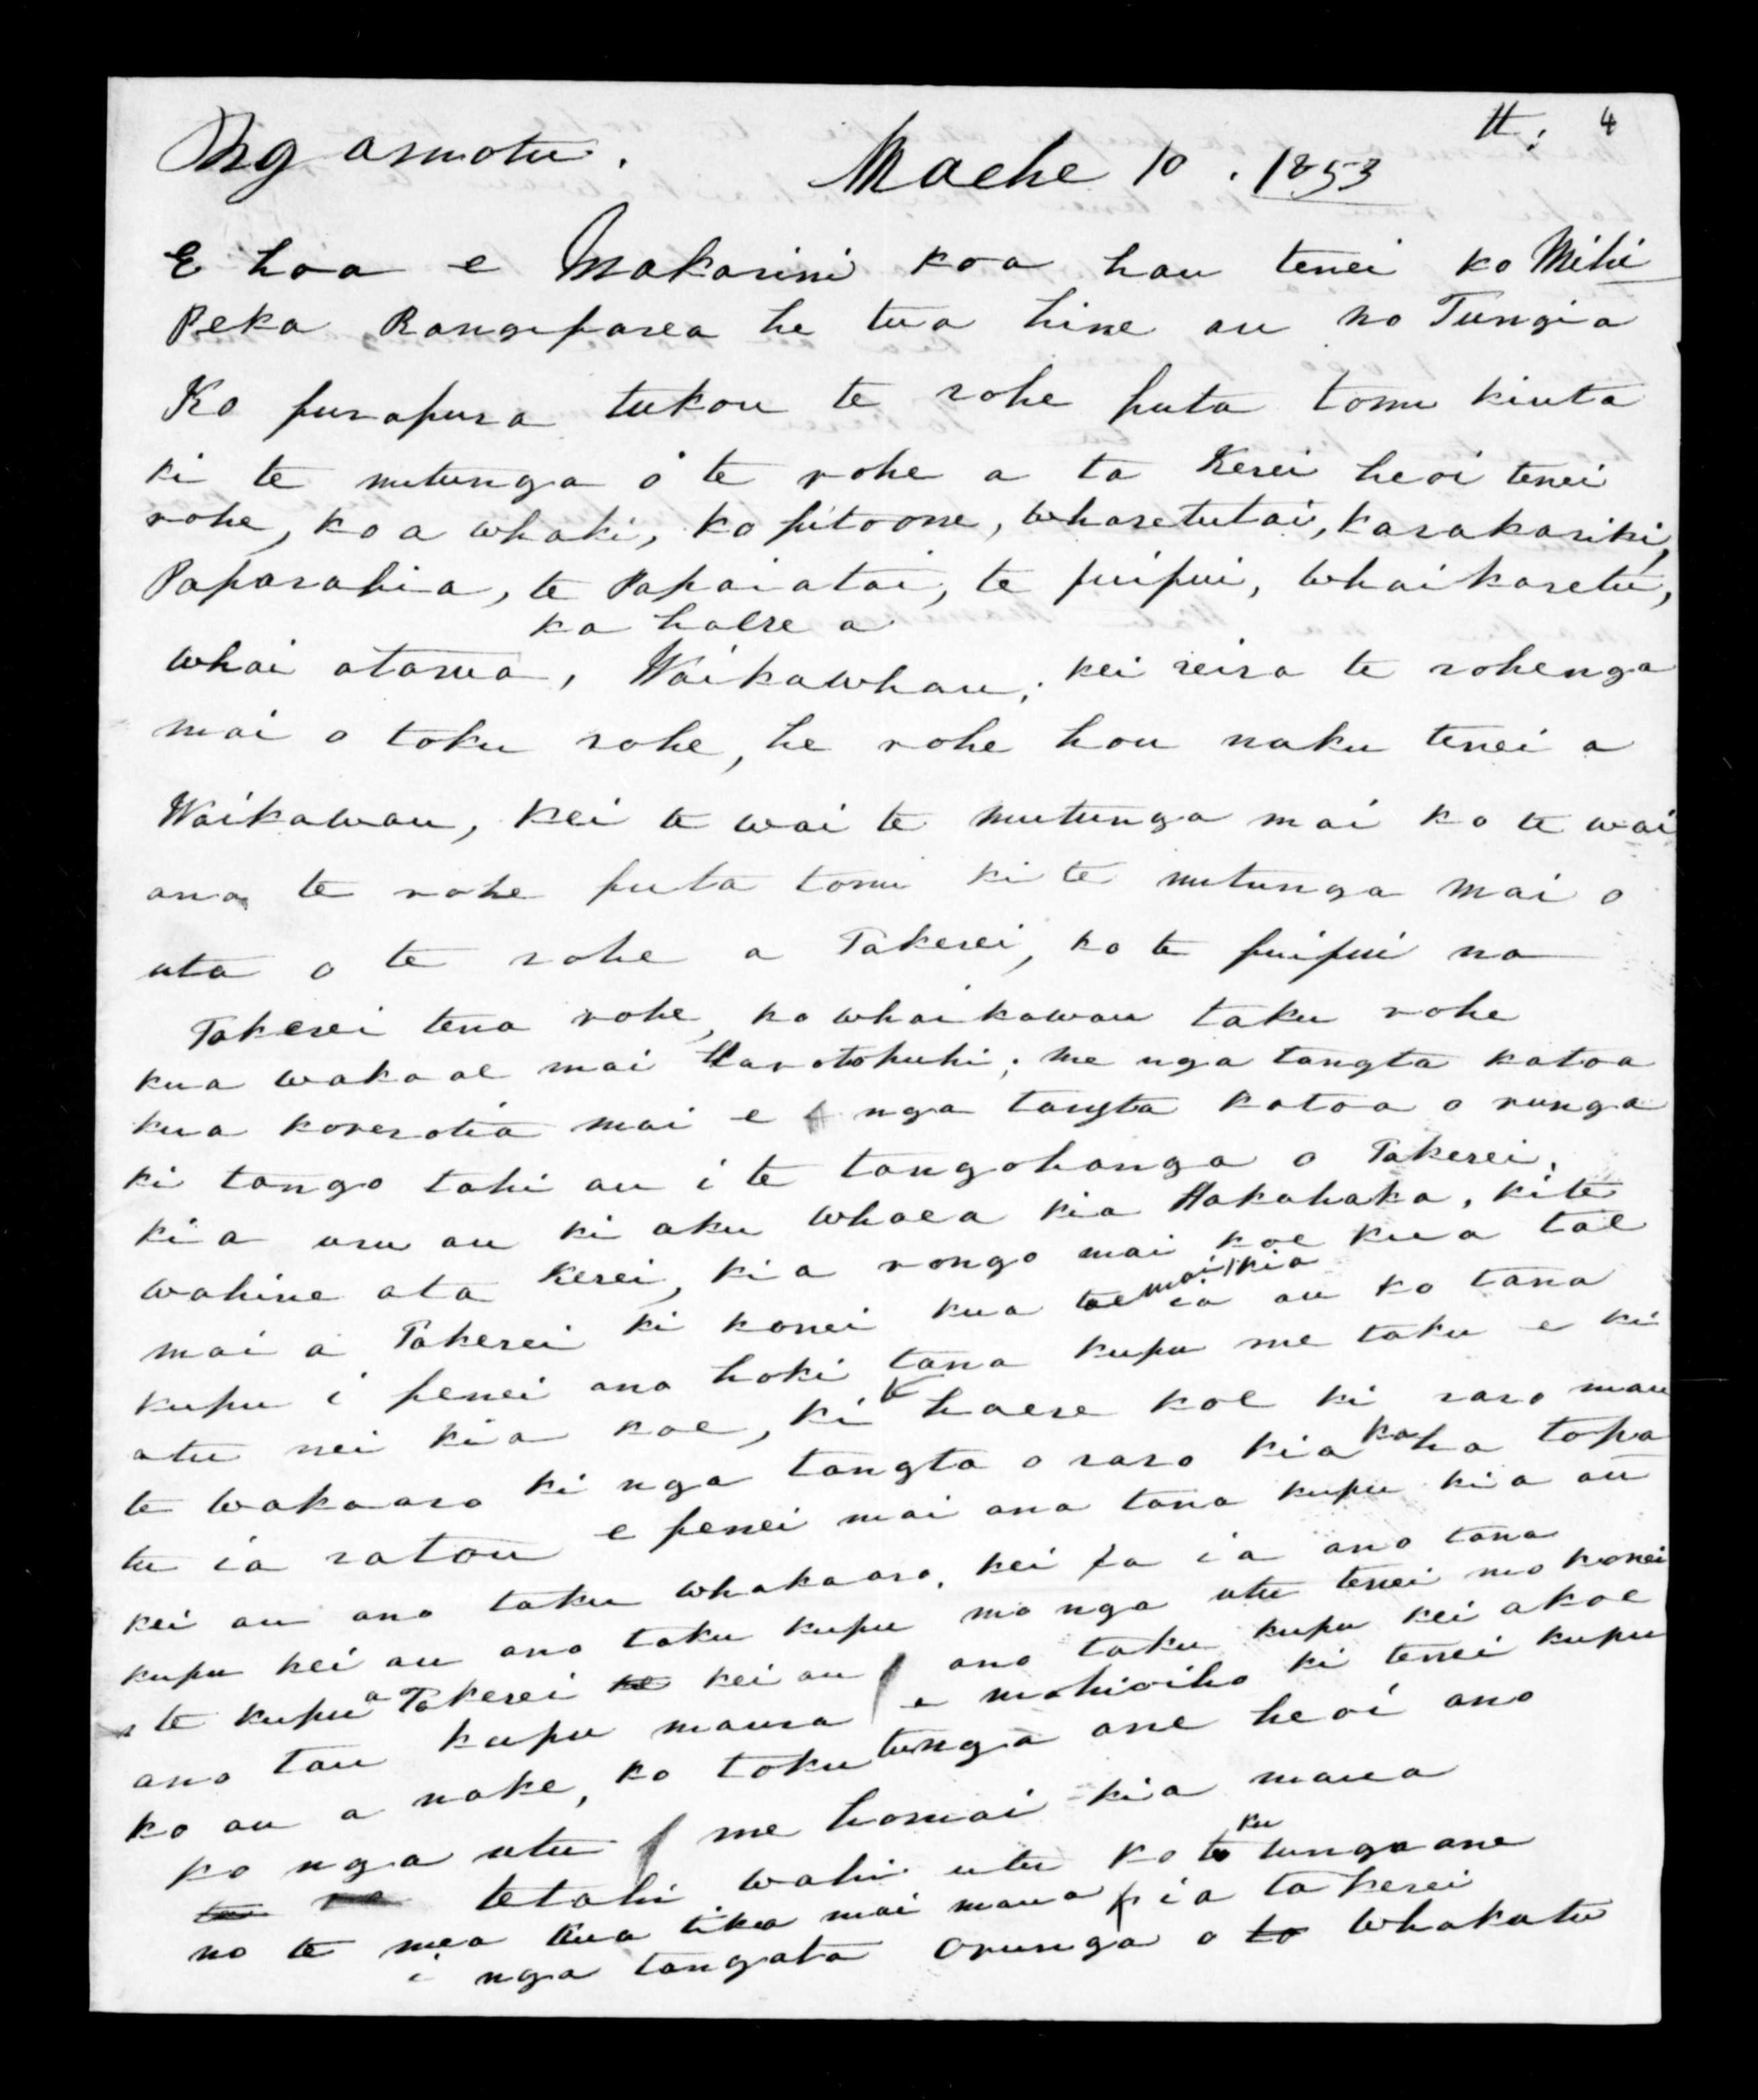 Ng amotu. Maehe 10. 1853
4
E hoa e Makarini koa hau tenei ko Mihi
Peka Rangiparea he tua hine au no Tungia
Ko purapura tukou te rohe puta tonu kiuta
ki te mutunga o te rohe a ta Kerei heoi tenei
rohe, ko a whaki, ko pitoone, wharetutai, karakariki,
Paparahia, te Papaiatai, te puipui, whaikaretu,
ka haere a
whai atarua, Waikawhau, kei reira te rohenga
mai o toku rohe, he rohe hou naku tenei a
Waikawau, kei te wai te mutunga mai ko te wai
ano te rohe puta tonu ki te mutunga mai o
uta o te rohe a Takerei, ko te puipui na
Takerei tena rohe, ko whaikawau taku rohe
kua wakaae mai Harotohuhi; me nga tangta katoa
kua korerotia mai e nga tangta katoa o runga
ki tango tahi au i te tangohanga o Takerei.
kia uru au ki aku whaea kia Hakahaka, kite
wahine ata Kerei, kia rongo mai koe kua tae
mai a Takerei ki konei kua tae mai ia kia au ko tana
kupu i penei ano hoki tana kupu me taku e ki
atu nei kia koe, ki te haere koe ki raro mau
te wakaaro ki nga tangta o raro kia kaha topa
tu ia ratou e penei mai ana tana kupu kia au
kei au ano taku whakaaro, kei a ia ano tana
kupu kei au ano taku kupu mo nga utu tenei mo konei
te kupu a Takerei kei au ano taku kupu kei akoe
ano tau kupu maua e mohioiho ki tenei kupu
ko au a nake, ko toku tunga ane heoi ano
ko nga utu me homai kia maua
tetahi wahi utu ko toku tungaane
no te mea kua tika mai maua ia takerei
i nga tangata orunga o to whakatu